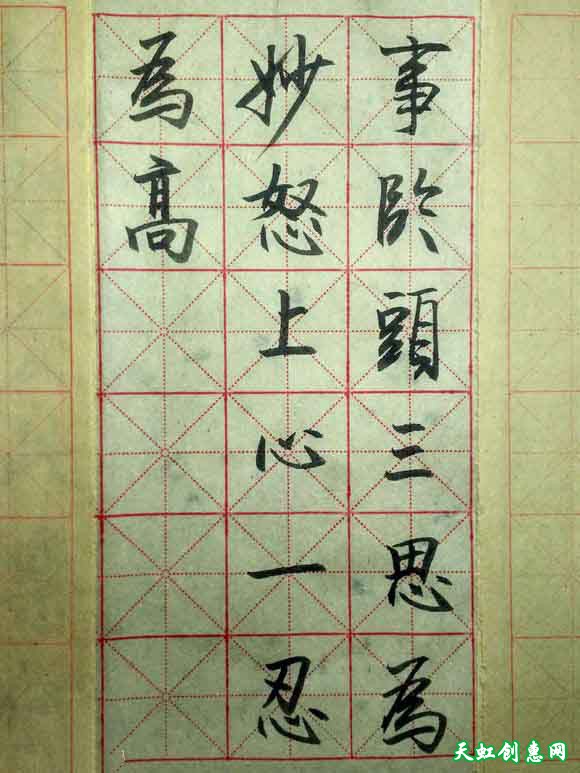 事臨頭三思為
妙怒上心一忍
為高
天虹创惠网